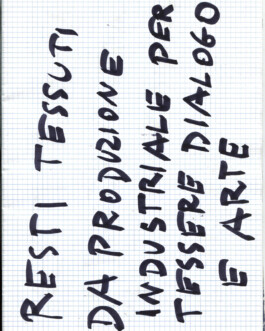 RESTI TESSUTI
DA PRODUZIONE
INDUSTRIALE PER
TESSERE DIALOGO
E ARTE